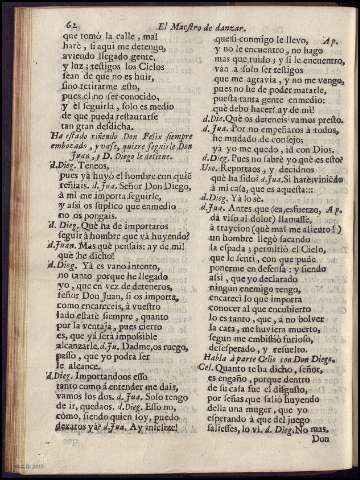 62
El Maestro de danzar.
que tomò la calle, mal
harè, si aqui me detengo,
aviendo llegado gente,
y luz; testigos los Cielos
sean de que no es huir,
sino retirarme esto,
pues el no ser conocido,
y el seguirla, solo es medio
de que pueda restaurarse
tan gran desdicha.
Ha estado riñendo Don Felix siempre
embozado, y vase, quiere seguirle Don
Juan, y D. Diego le detiene.
d. Dieg. Teneos,
pues yà huyò el hombre con quiẽ
reñiais. d. Jua. Señor Don Diego,
à mi me importa seguirle,
y assi os suplico que enmedio
no os pongais.
d. Dieg. Què ha de importaros
seguir à hombre que và huyendo?
d. Juan. Mas que pensais; ay de mi!
què he dicho!
d. Dieg. Yà es vano intento,
no tanto porque he llegado
yo, que en vez de deteneros,
señor Don Juan, si os importa,
como encareceis, à vuestro
lado estarè siempre, quanto
por la ventaja, pues cierto
es, que yà serà impossible
alcançarle. d. Ju. Dadme, os ruego,
passo, que yo podrà ser
le alcance.
d. Dieg. Importandoos esso
tanto como à entender me dais,
vamos los dos. d. Jua. Solo tengo
de ir, quedaos. d. Dieg. Esso no,
còmo, siendo quien soy, puedo
dexaros yà? d. Jua. Ay infeliz!
que si conmigo le llevo, Ap.
y no le encuentro, no hago
mas que ruido; y si le encuentro,
vàn à solo ser testigos
que me agravia, y no me vengo,
pues no he de poder matarle,
puesta tanta gente enmedio:
què debo hacer? ay de mi!
d. Die. Què os deteneis? vamos presto.
d. Jua. Por no empeñaros à todos,
he mudado de consejo;
yà yo me quedo, id con Dios.
d. Dieg. Pues no sabrè yo què es esto?
Uno. Reportaos, y decidnos
què ha sido? d. Jua. Si harè: viniẽdo
à mi casa, que es aquesta:::
d. Dieg. Yà lo sè.
d. Jua. Antes que (ea, esfuerzo, Ap.
dà viso al dolor) llamasse,
à traycion (què mal me aliento!)
un hombre llegò sacando
la espada; permitiò el Cielo,
que le sentì, con que pude
ponerme en defensa: y siendo
assi, que yo declarado
ningun enemigo tengo,
encareci lo que importa
conocer al que encubierto
lo es tanto, que, à no bolver
la cara, me huviera muerto,
segun me embistiò furioso,
desesperado, y resuelto.
Habla à parte Celio con Don Diego.
Cel. Quanto te ha dicho, señor,
es engaño, porque dentro
de su casa fue el disgusto,
por señas que saliò huyendo
della una muger, que yo
esperando à que del juego
saliesses, lo vì. d. Dieg. No mas.
Don